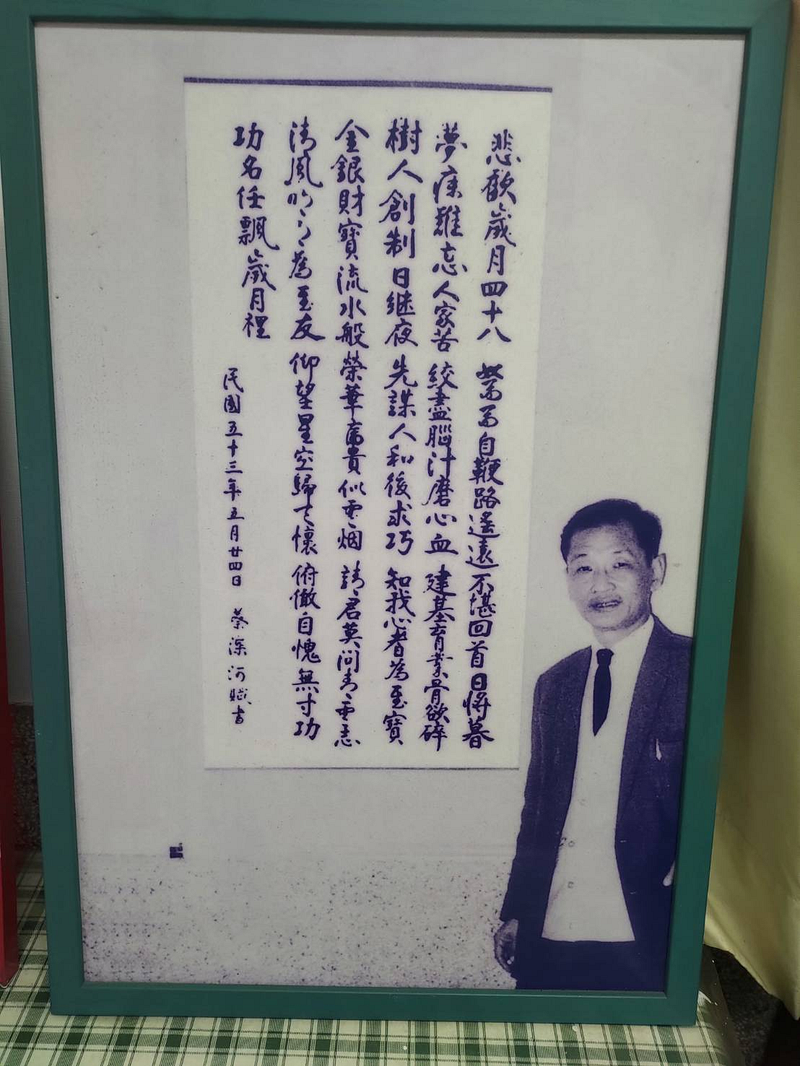 悲歡歲月四十八 駑馬自鞭路遙遠 不堪回首日將暮
夢寐難忘人家苦 絞盡腦汁磨心血 建基育業骨欲碎
樹人創制日継夜 先謀人和後求巧 知我心者為至寶
金銀財寶流水般 榮華富貴似雲烟 請君莫問青雲志
清風明月為至友 仰望星空歸去懷 俯儆自愧無寸功
功名任飄歲月裡
民國五十三年五月廿四日 蔡深河賦書